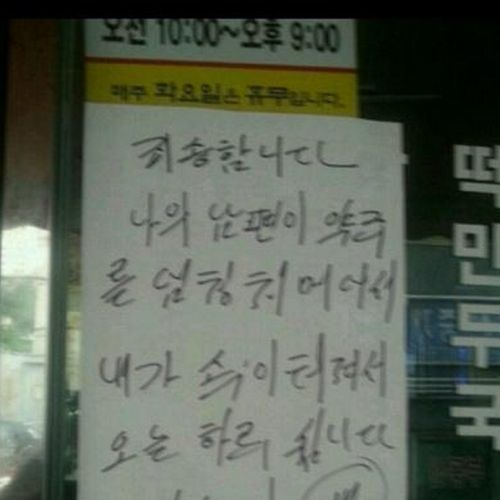 오전 10:00~오후 9:00
매주 화요일은 휴무입니다.
죄송합니다
나의 남편이 약주
를 엄청 처 머어서
내가 속이 터져서
오늘 하루 쉽니다
떡만두국